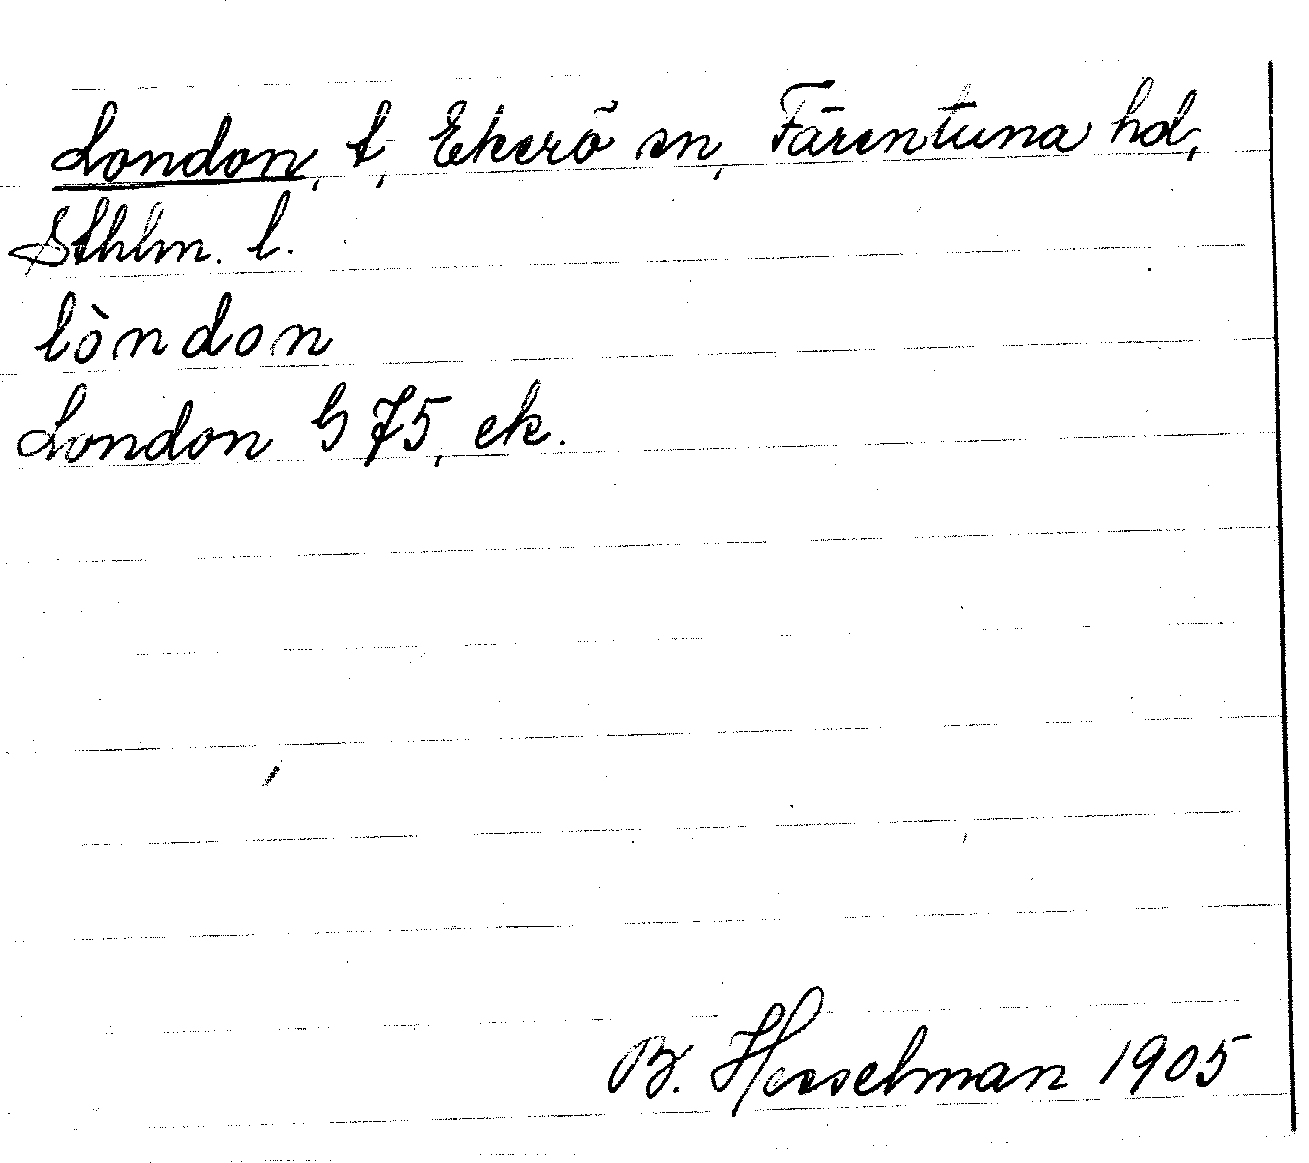 London, t, Ekerö sn, Färentuna hd,
Sthlm. l.
lòndon
London G 75, ek.
B. Hesselman 1905